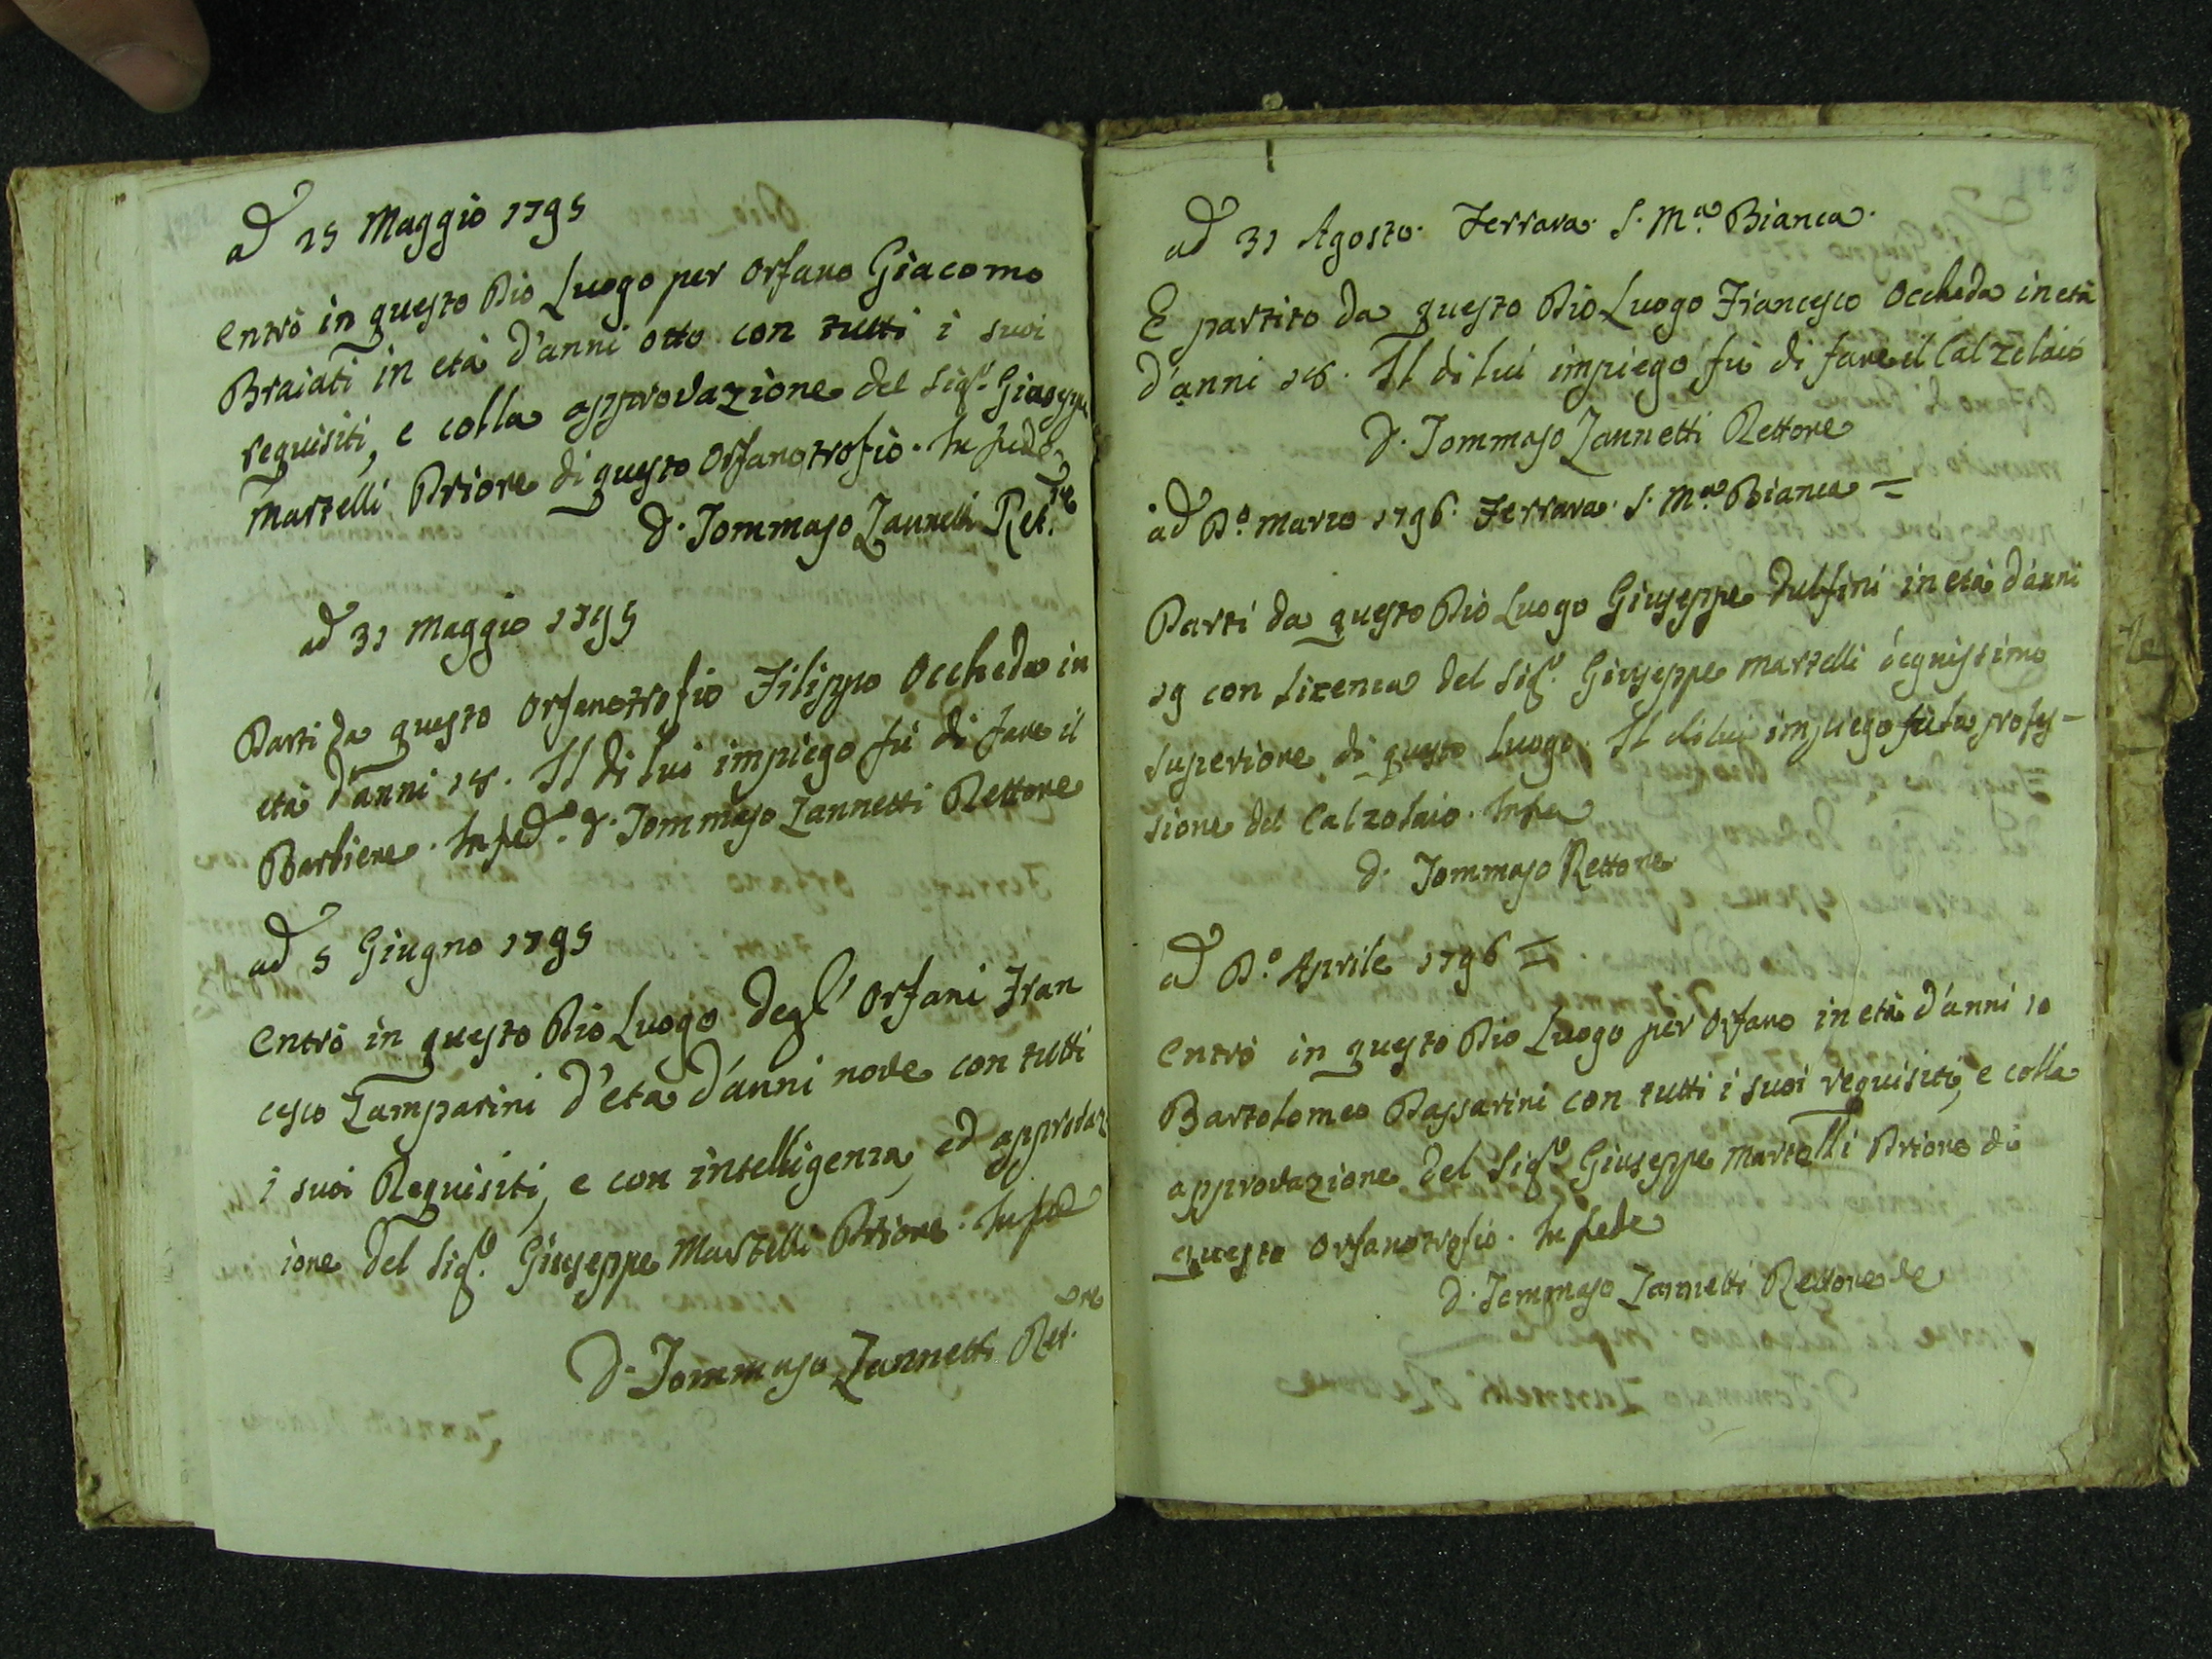 ad 25 Maggio 1795
Entrò in questo Pio Luogo per Orfano Giacomo
Braiati in età d'anni otto con tutti i suoi
requisiti, e colla approvazione del Sigr. Giusepp
Martelli Priore di questo Orfanotrofio. In fede
D. Tommaso Zannetti Ret.re
ad 31 Maggio 1795
Parti da questo Orfanotrofio Filippo Occheda in
età d'anni 18. Il di lui impiego fù di fare il
Barbiere. In fed.e D. Tommaso Zannetti Rettore
ad 5 Giugno 1795
Entrò in questo Pio Luogo degl' Orfani Fran
cesco Zamparini d'età d'anni nove con tutti
i suoi Requisiti, e con intelligenza, ed approvaz
ione del Sigr. Giuseppe Martelli Priore. In fede
D. Tommaso Zannetti Ret.ore
ad 31 Agosto. Ferrara S. Ma. Bianca.
E partito da questo Pio Luogo Francesco Occheda in età
d'anni 18. Il di lui impiego fù di fare il Calzolaio
D. Tommaso Zannetti Rettore
ad P.o Marzo 1796. Ferrara S. Ma. Bianca =
Parti da questo Pio Luogo Giuseppe Dulfini in età d'anni
19 con licenza del Sigr. Giuseppe Martelli degnissimo
Superiore di questo Luogo. Il di lui impiego fù la profes-
sione del Calzolaio. In fe
D. Tommaso Rettore
ad P.o Aprile 1796 =
Entrò in questo Pio Luogo per Orfano in età d'anni 10
Bartolomeo Passarini con tutti i suoi requisiti, e colla
approvazione del Sigr. Giuseppe Martelli Priore di
questo Orfanotrofio. In fede
D. Tommaso Zannetti Rettore